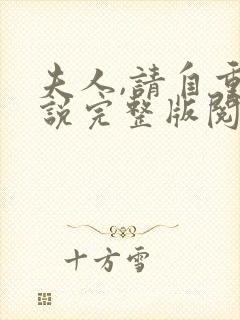 夫人,請自重
說完整版閱
十方雪